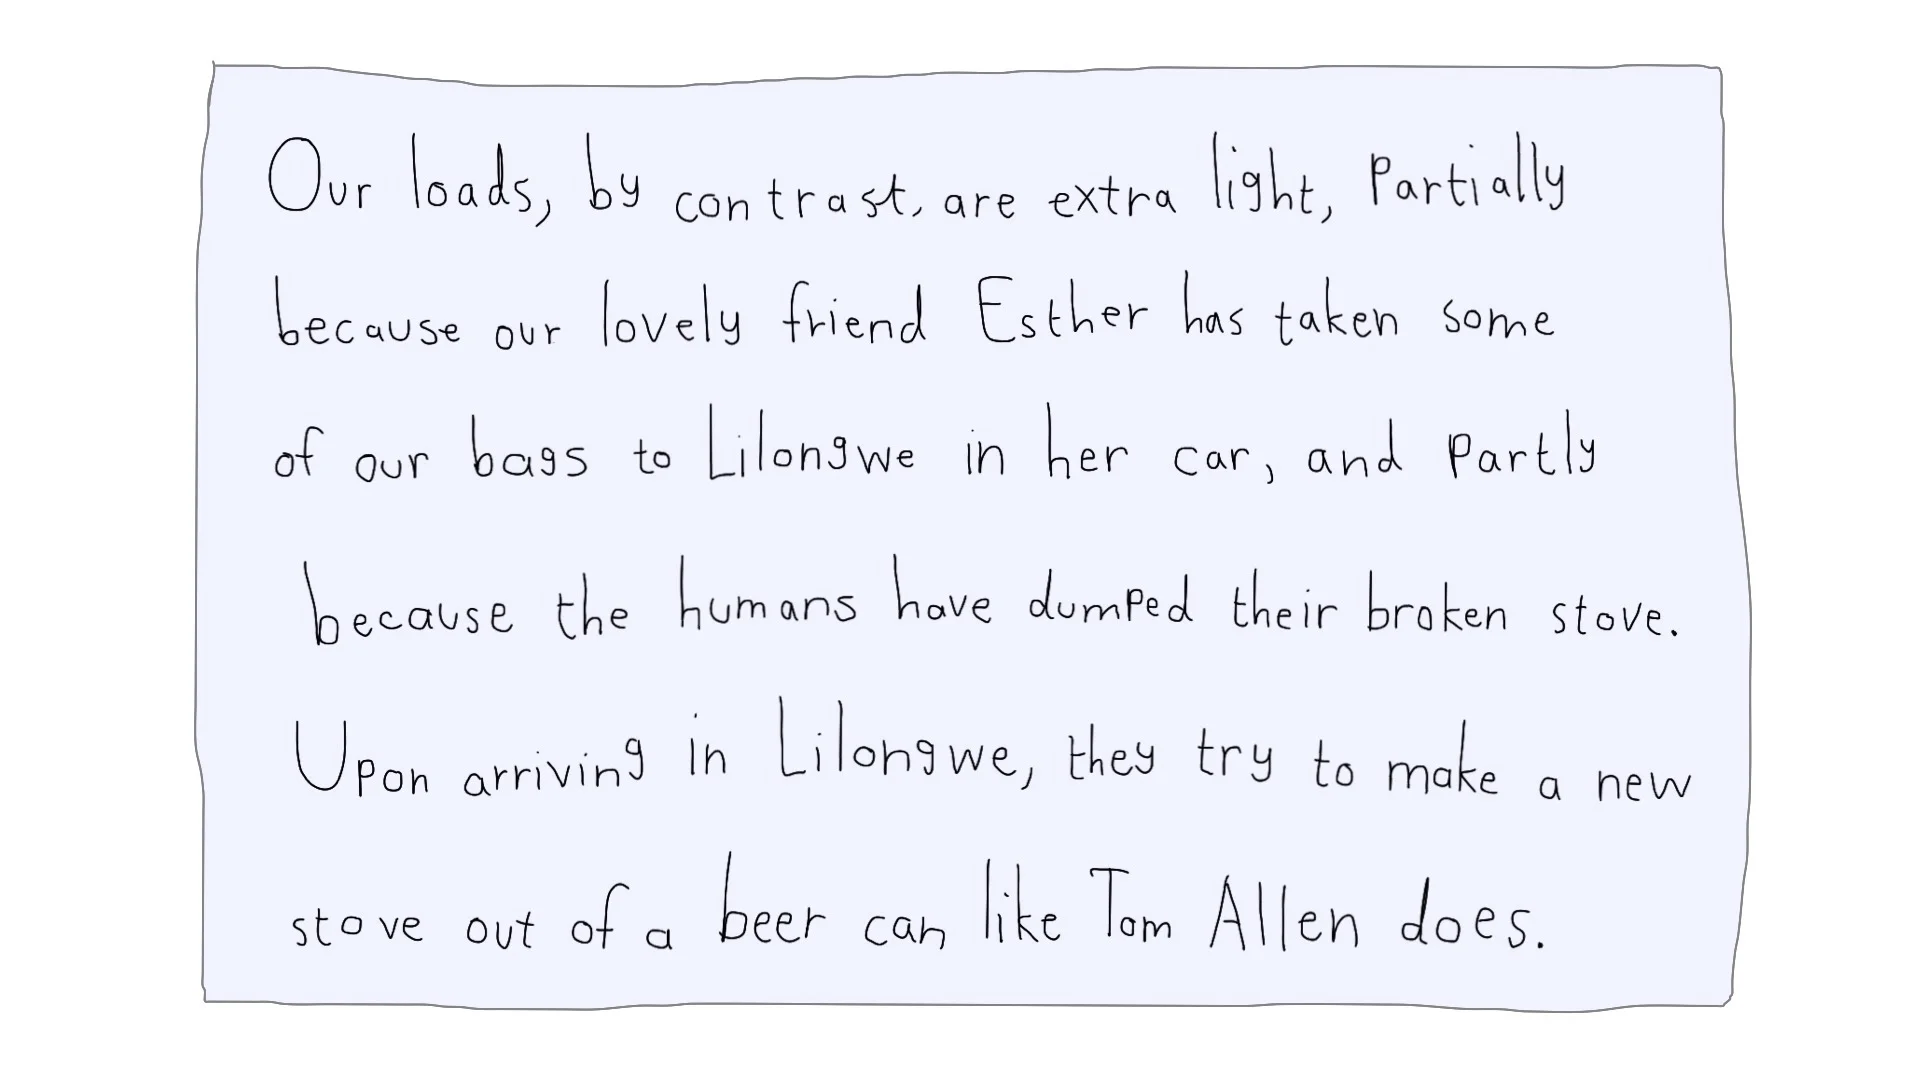 Our loads, by contrast, are extra light, partially
because our lovely friend Esther has taken some
of our bags to Lilongwe in her car, and partly
because the humans have dumped their broken stove.
Upon arriving in Lilongwe, they try to make a new
stove out of a beer can like Tom Allen does.